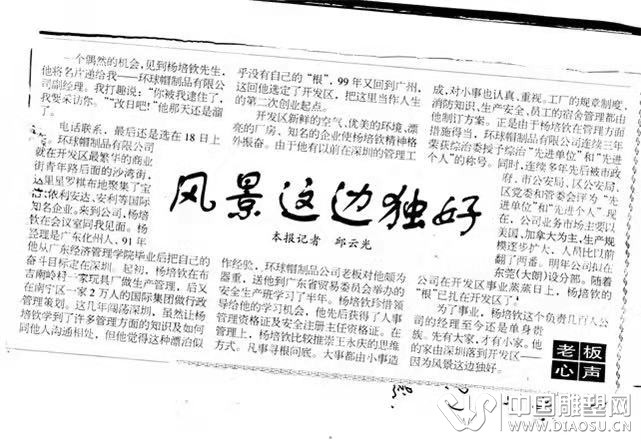 一个偶然的机会，见到杨培钦先生，
他将名片递给我——环球帽制品有限公
司副经理。我打趣说：“你被我逮住了，
我要采访你。”“改日吧！”他那天还是溜
了。
电话联系，最后还是选在18日上
环球帽制品有限公司
就在开发区最繁华的商业
街青年路后面的沙湾街，
这里星罗棋布地聚集了宝
依利安达、安利等国际
知名企业。来到公司，杨培
钦在会议室同我见面。杨
经理是广东化州人，91年
他从广东经济管理学院毕业后把自己的
奋斗目标定在深圳。起初，杨培钦在布
吉南岭村一家玩具厂做生产管理，后又
在南宁区一家2万人的国际集团做行政
管理策划。这几年闯荡深圳，虽然让杨
培钦学到了许多管理方面的知识及如何
同他人沟通相处，但他觉得这种漂泊似
乎没有自己的“根”，99年又回到广州，
这回他选定了开发区，把这里当作人生
的第二次创业起点。
开发区新鲜的空气、优美的环境、漂
亮的厂房、知名的企业使杨培钦精神格
外振奋。由于他有以前在深圳的管理工
风景这边独好
本报记者 邱云光
作经验，环球帽制品公司老板对他颇为
器重，送他到广东省贸易委员会举办的
安全生产班学习了半年。杨培钦珍惜领
导给他的学习机会，他先后获得了人事
管理资格证及安全注册主任资格证。在
管理上，杨培钦比较推崇王永庆的思维
方式。凡事寻根问底。大事都由小事造
成，对小事也认真、重视。工厂的规章制度、
消防知识、生产安全、员工的宿舍管理都由
他制订方案。正是由于杨培钦在管理方面
措施得当，环球帽制品有限公司连续三年
荣获综治委授予综治“先进单位”和“先进
个人”的称号。
同时，连续多年先后被市政
府、市公安局、区公安局、
区党委和管委会评为“先
进单位”和“先进个人”现
在，公司业务市场主要以
美国、加拿大为主，生产规
模逐步扩大，人员比以前
翻了两番。明年公司拟在
东莞(大朗)设分部。随着
公司在开发区事业蒸蒸日上，杨培钦的
“根”已扎在开发区了。
为了事业，杨培钦这个负责几百人公
司的经理至今还是单身贵
族。先有大家，才有小家。他
的家由深圳落到开发区——
因为风景这边独好。
老板
心声
中国雕塑网
WWW.DIAOSU.CN